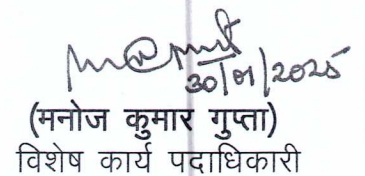 30/01/2025
(मनोज कुमार गुप्ता)
विशेष कार्य पदाधिकारी